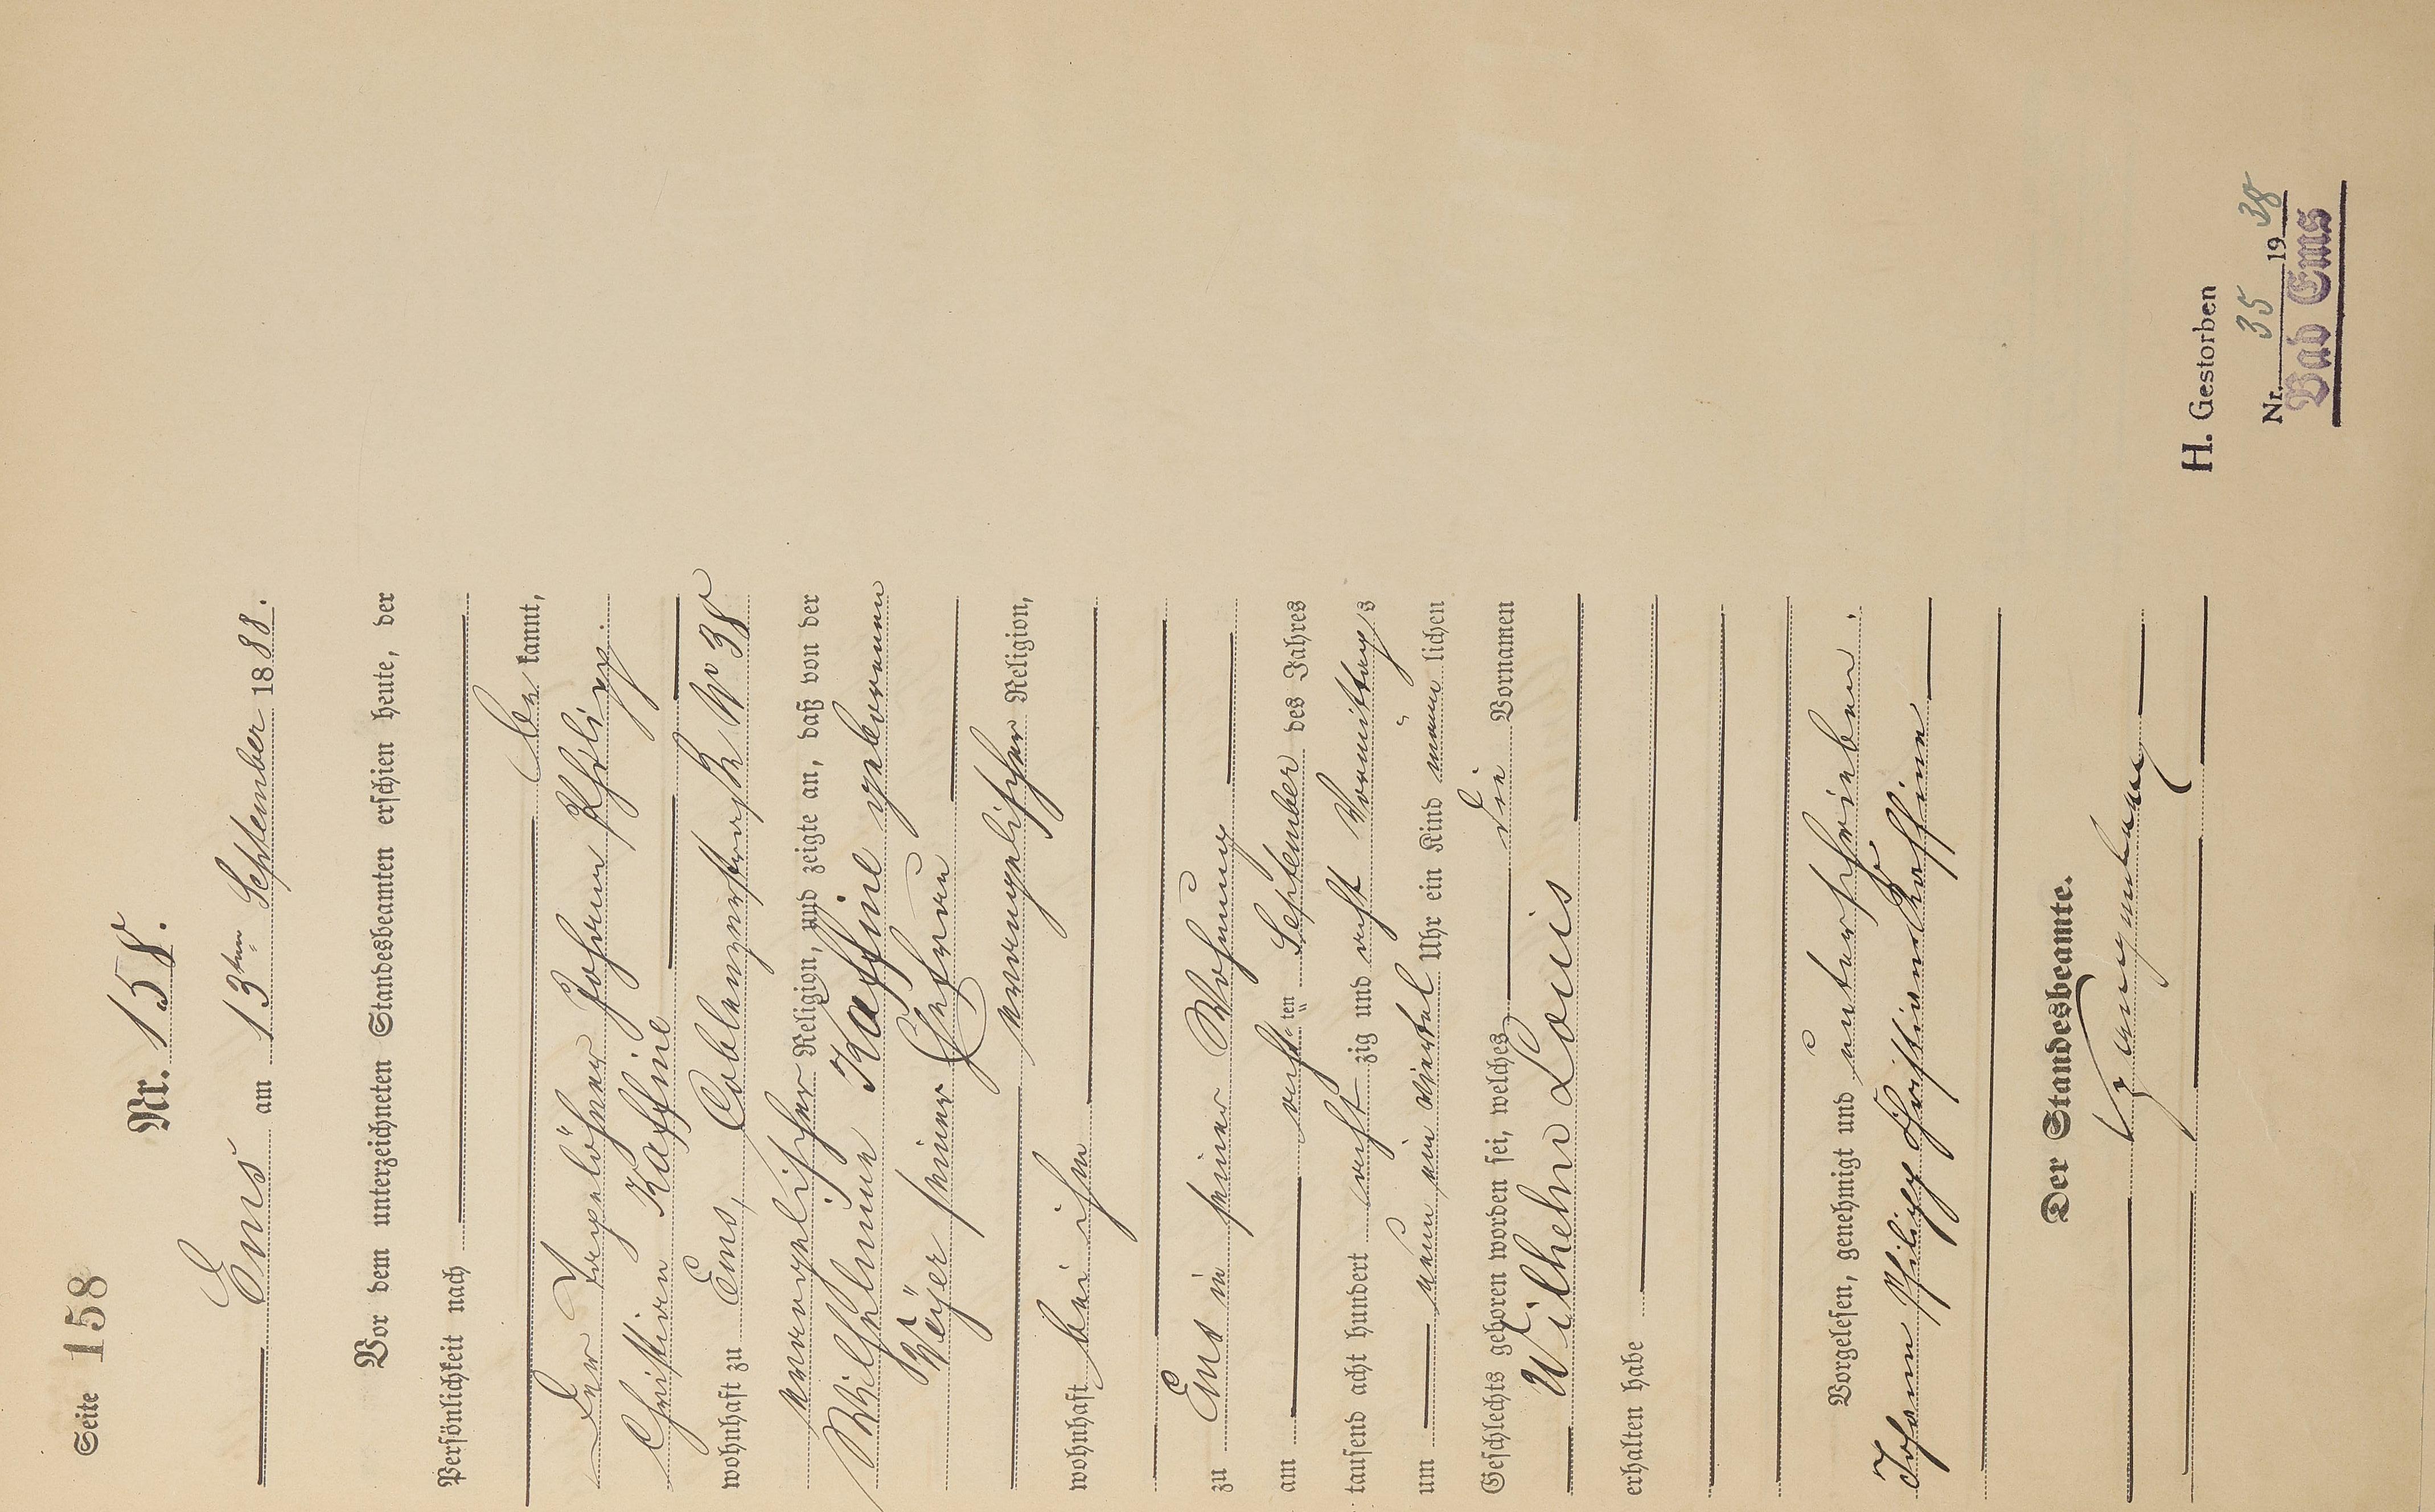 Seite 158
Nr. 158.
Ems am 13ten September 1888.
Vor dem unterzeichneten Standesbeamten erschien heute, der
Persönlichkeit nach
be kannt,
Der Tagelöhner Johann Philipp
Christian Kaffine
wohnhaft zu Ems, Coblenzerstraße No 38
evangelischer Religion, und zeigte an, daß von der
Wilhelmine Kaffine geborenen
Weyer seiner Ehefrau
evangelischer Religion,
wohnhaft bei ihm
zu Ems in seiner Wohnung
am achtten September des Jahres
tausend acht hundert acht zig und acht Vormittags
um neun ein viertel Uhr ein Kind männ lichen
Geschlechts geboren worden sei, welches die Vornamen
Wilhelm Louis
erhalten habe
Vorgelesen, genehmigt und unterschrieben.
Johann Philipp Christian Kaffine
Der Standesbeamte.
H. Gestorben
Nr. 35 1938
Bad Ems